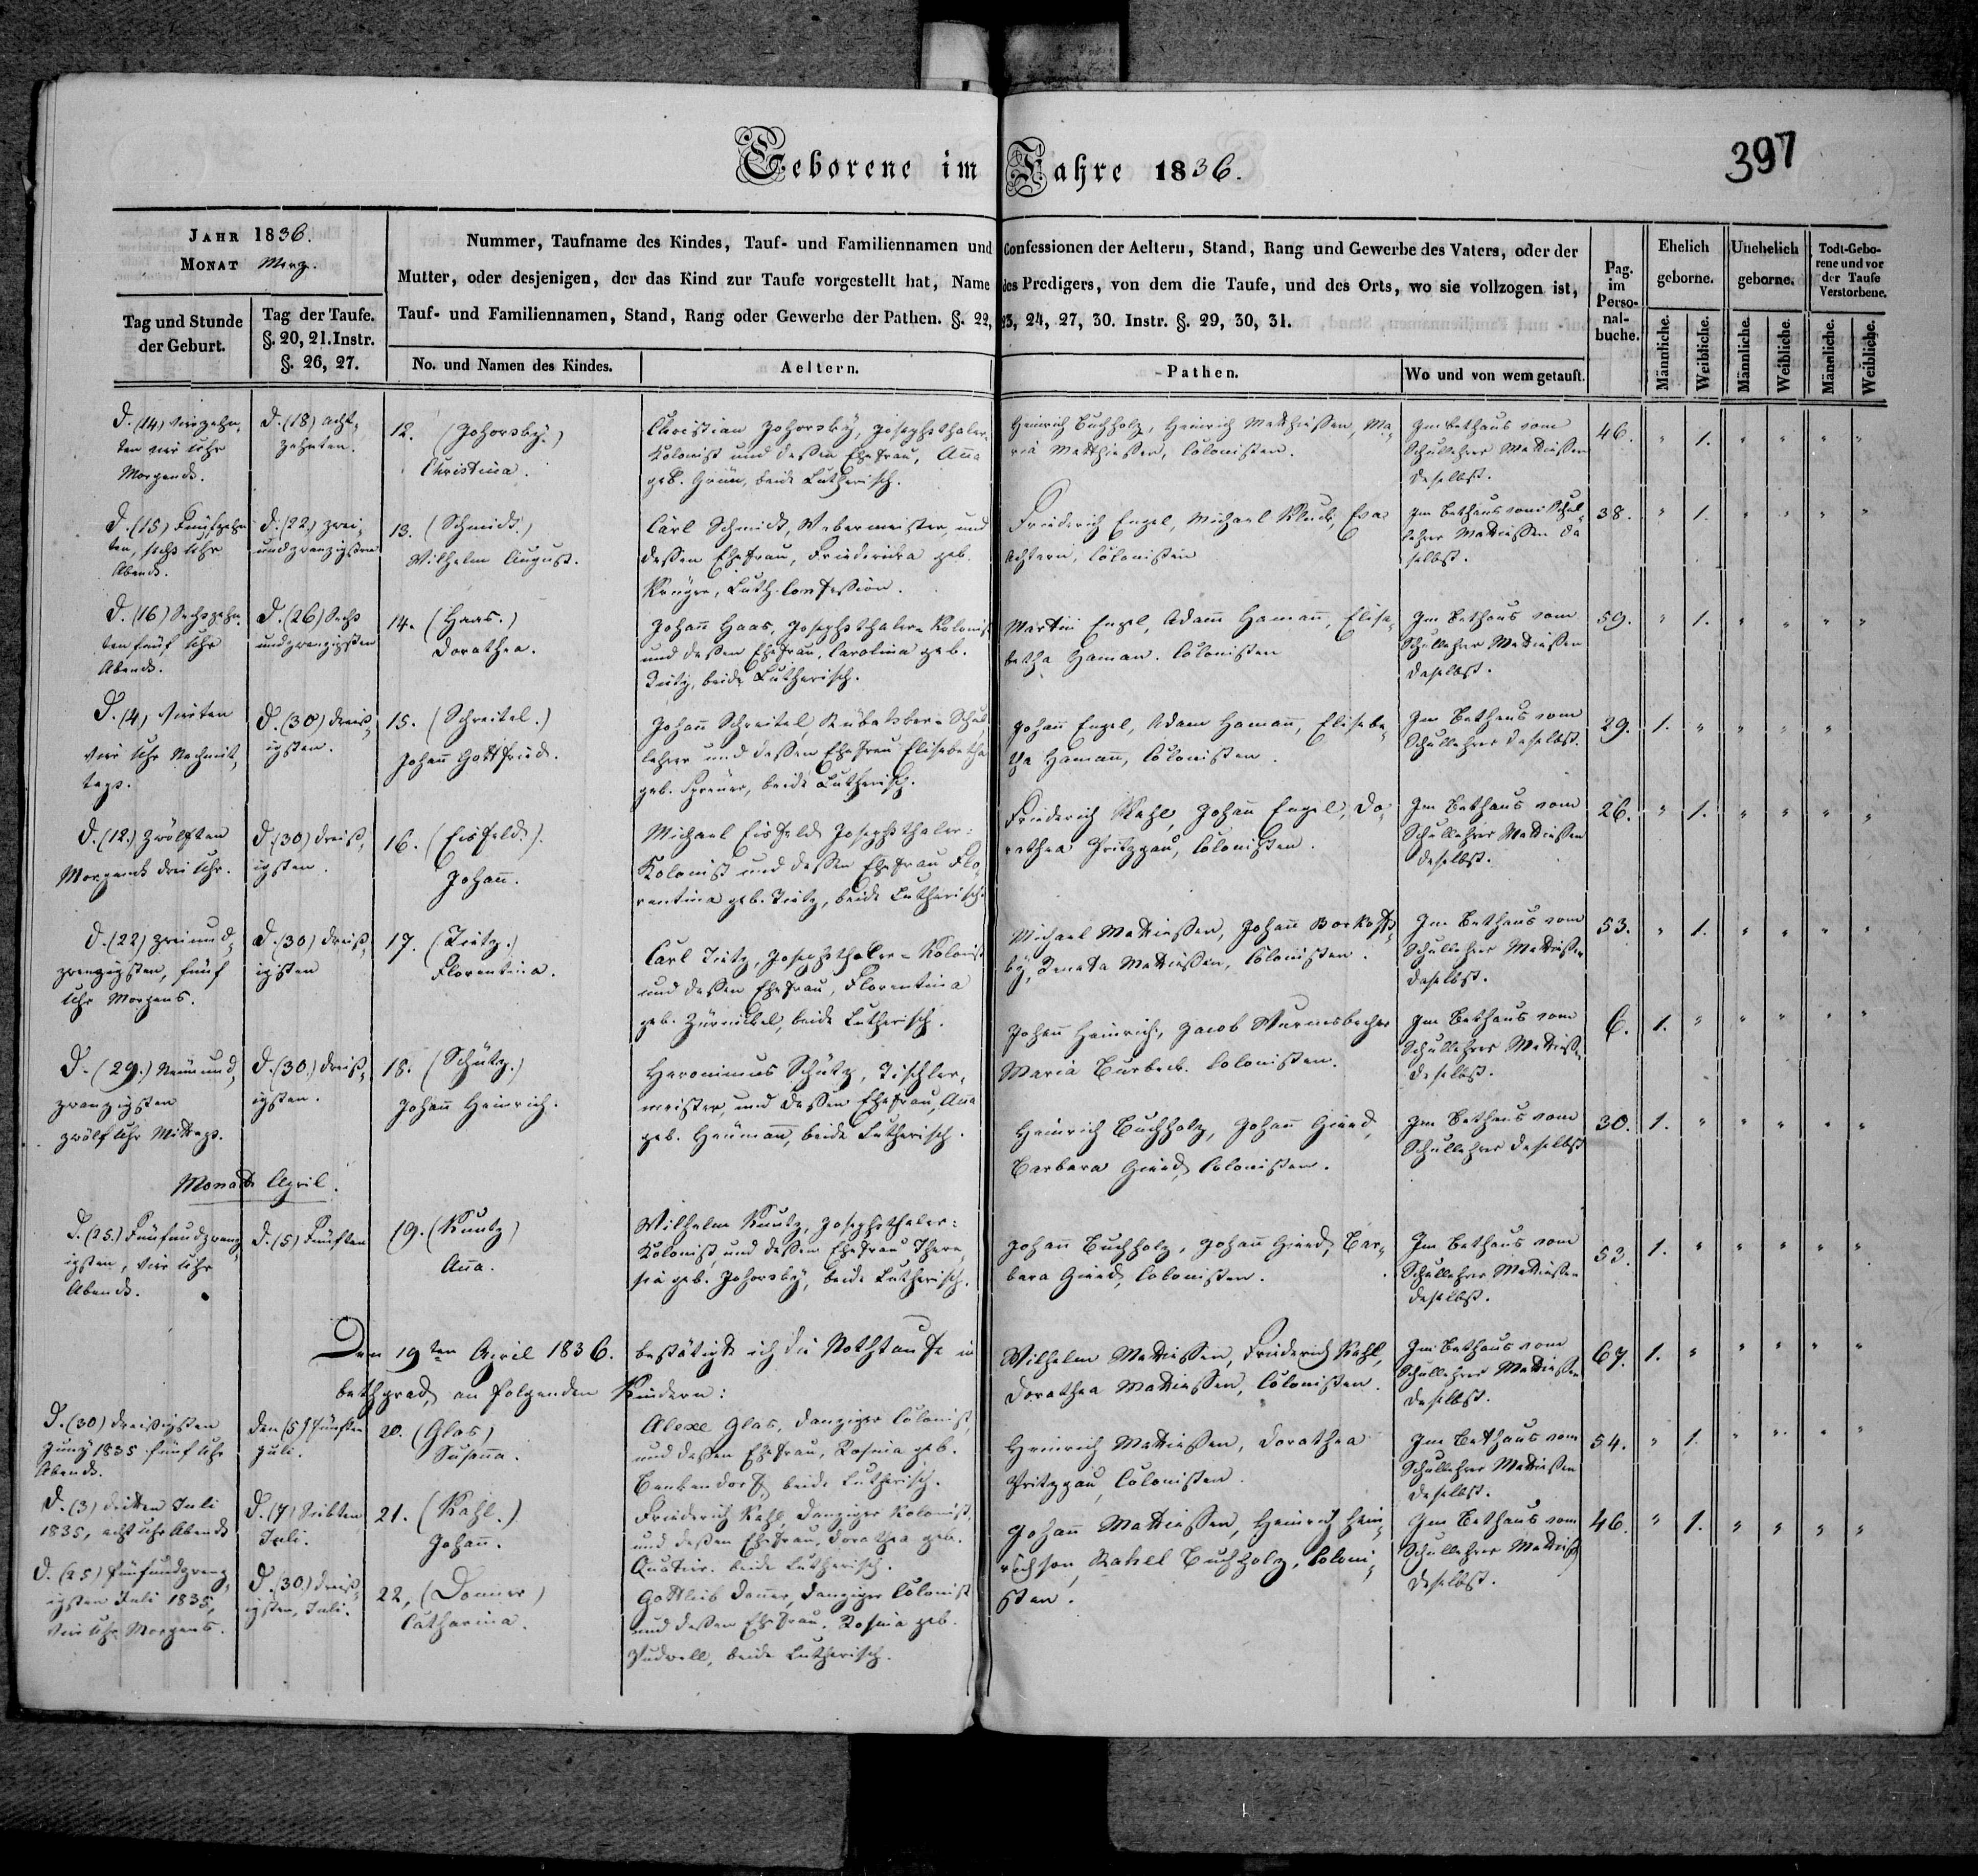 Geborene im Jahre 1836.
397
JAHR 1836.
MONAT Merz.
Tag und Stunde
der Geburt.
Tag der Taufe.
§. 20, 21. Instr.
§. 26, 27.
Nummer, Taufname des Kindes, Tauf- und Familiennamen und Confessionen der Aeltern, Stand, Rang und Gewerbe des Vaters, oder der
Mutter, oder desjenigen, der das Kind zur Taufe vorgestellt hat, Name des Predigers, von dem die Taufe, und des Orts, wo sie vollzogen ist,
Tauf- und Familiennamen, Stand, Rang oder Gewerbe der Pathen. §. 22, 23, 24, 27, 30. Instr. §. 29, 30, 31.
No. und Namen des Kindes.
Aeltern.
Pathen.
Wo und von wem getauft.
Pag.
im
Perso-
nal-
buche.
Ehelich
geborne.
Unehelich
geborne.
Todt-Gebo-
rene und vor
der Taufe
Verstorbene.
Männliche.
Weibliche.
Männliche.
Weibliche.
Männliche.
Weibliche.
D. (14) vierzehn-
ten vier Uhr
Morgends.
D. (18) acht-
zehnten.
12. (Johorsky.)
Christina.
Christian Johorsky, Josephsthaler-
Kolonist und dessen Ehefrau, Anna
geb. Grün, beide Lutherisch.
Heinrich Buchholz, Heinrich Matthiessen, Ma-
ria Matthiessen, Colonisten.
Im Bethaus vom
Schullehrer Mattiessen
daselbst.
46. " 1. " " " "
D. (15) Fünfzehn-
ten, sechs Uhr
Abends.
D. (22) zwei-
undzwanzigsten
13. (Schmidt.)
Wilhelm August.
Carl Schmidt, Webermeister, und
dessen Ehefrau, Friedericka geb.
Krüger, Luth. Confession.
Friederich Engel, Michael Kluck, Eva
Colonisten
Im Bethaus vom Schul-
lehrer Mattiessen da
selbst.
38. " 1. " " " "
D. (16) Sechszehn-
ten fünf Uhr
Abends.
D. (26) Sechs
undzwanzigsten
14. (Haas.)
Dorathea.
Johann Haas, Josephsthaler-Kolonist
und dessen Ehefrau, Carolina geb.
Tietz, beide Lutherisch.
Martin Engel, Adam Hamann, Elisa-
betha Haman. Colonisten
Im Bethaus vom
Schullehrer Mattiessen
daselbst.
59. " 1. " " " "
D. (4) vierten
vier Uhr Nachmit-
tags.
D. (30) dreiss-
igsten.
15. (Schreitel.)
Johann Gottfried.
Johann Schreitel, Schul-
lehrer und dessen Ehefrau Elisabetha
geb. beide Lutherisch.
Johann Engel, Adam Hamann, Elisabe-
tha Hamann, Colonisten.
Im Bethaus vom
Schullehrer daselbst.
29. 1. " " " "
D. (12.) zwölften
Morgends drei Uhr.
D. (30) dreiss-
igsten.
16. (Eisfeld.)
Johann.
Michael Eisfeld Josephsthaler-
Kolonist und dessen Ehefrau Flo-
rentina geb. Tietz, beide Lutherisch.
Friederich Kahl, Johann Engel, Do-
rathea Pritzgau, Colonisten.
Im Bethaus vom
Schullehrer Mattiessen
daselbst.
26. " 1. " " " "
D. (22) zweiund-
zwanzigsten, fünf
Uhr Morgens.
D. (30) dreiss-
igsten
17. (Tietz.)
Florentina.
Carl Tietz, Josephsthaler-Kolonist
und dessen Ehefrau, Florentina
geb. Zürnickel, beide Lutherisch.
Michael Mattiessen, Johann
Renata Mattiessen, Colonisten.
Im Bethaus vom
Schullehrer Mattiessen
daselbst.
53. " 1. " " " "
D. (29.) Neunund-
zwanzigsten
zwölf Uhr Mittags.
D. (30.) dreiss-
igsten.
18. (Schütz.)
Johann Heinrich.
Heronimus Schütz, Tischler-
meister, und dessen Ehefrau, Anna
geb. Heumann, beide Lutherisch.
Johann Heinrich, Jacob Wurmsbecher
Maria Burbeck. Colonisten.
Im Bethaus vom
Schullehrer Mattiessen
daselbst.
6. 1. " " " " "
Heinrich Buchholz, Johann Gierd,
Barbara Gierd, Colonisten.
Im Bethaus vom
Schullehrer daselbst
30. 1. " " " " "
Monath April.
D. (25.) Fünfundzwanz-
igsten, vier Uhr
Abends.
D. (5) Fünften
19. (Kuntz)
Anna.
Wilhelm Kuntz, Josephsthaler-
Kolonist, und dessen Ehefrau There-
sia geb. Johorsky, beide Lutherisch.
Johann Buchholz, Johann Gierd, Bar-
bara Gierd, Colonisten.
Im Bethaus vom
Schullehrer Mattiessen
daselbst.
53. 1. " " " " "
Den 19ten April 1836. bestätigte ich die Nothtaufe in
an folgenden Kindern:
Wilhelm Mattiessen, Friederich Kahl,
Dorathea Mattiessen, Colonisten.
Im Bethaus vom
Schullehrer Mattiessen
daselbst.
67. 1. " " " " "
D. (30) dreissigsten
Juny 1835 fünf Uhr
Abends.
den (5) fünften
Juli.
20. (Glas)
Susanna.
Alexe Glas, Danziger Colonist,
und dessen Ehefrau, Rosina geb.
Benkendorf, beide Lutherisch.
Heinrich Mattiessen, Dorathea
Pritzgau, Colonisten.
Im Bethaus vom
Schullehrer Mattiessen
daselbst.
54. " 1. " " " "
D. (3) dritten Juli
1835, acht Uhr Abends
D. (7) Siebten
Juli.
21. (Kahl.)
Johann.
Friederich Kahl, Danziger Kolonist,
und dessen Ehefrau, Dorathea geb.
Quatier. beide Lutherisch.
Johann Mattiessen, Heinrich Hein-
richson, Rahel Buchholz, Coloni-
sten.
Im Bethaus vom
Schullehrer Mattiess
daselbst.
46. " 1. " " " "
D. (25) fünfundzwanz-
igsten Juli 1835,
vier Uhr Morgens.
D. (30.) dreiss-
igsten, Juli.
22, (Donner)
Catharina.
Gottlieb Donner, Danziger Colonist
und dessen Ehefrau, Rosina geb.
Pudwell, beide Lutherisch.